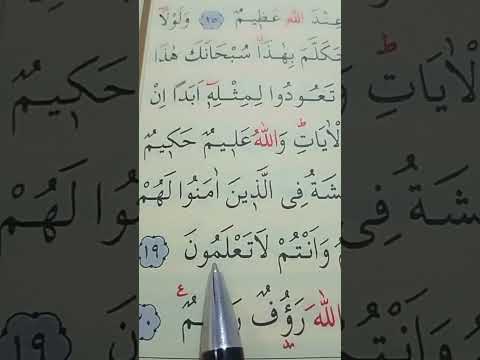 عِنْدَ اللّٰهِ عَظ۪يمٌ ﴿١٥﴾ وَلَوْلَٓا
تَكَلَّمَ بِهٰذَاۗ سُبْحَانَكَ هٰذَا
تَعُودُوا لِمِثْلِه۪ٓ اَبَدًا اِنْ
الْاٰيَاتِۜ وَاللّٰهُ عَل۪يمٌ حَك۪يمٌ
شَةُ فِي الَّذ۪ينَ اٰمَنُوا لَهُمْ
وَاَنْتُمْ لَا تَعْلَمُونَ ﴿١٩﴾
اللّٰهَ رَؤُ۫فٌ رَح۪يمٌ ع